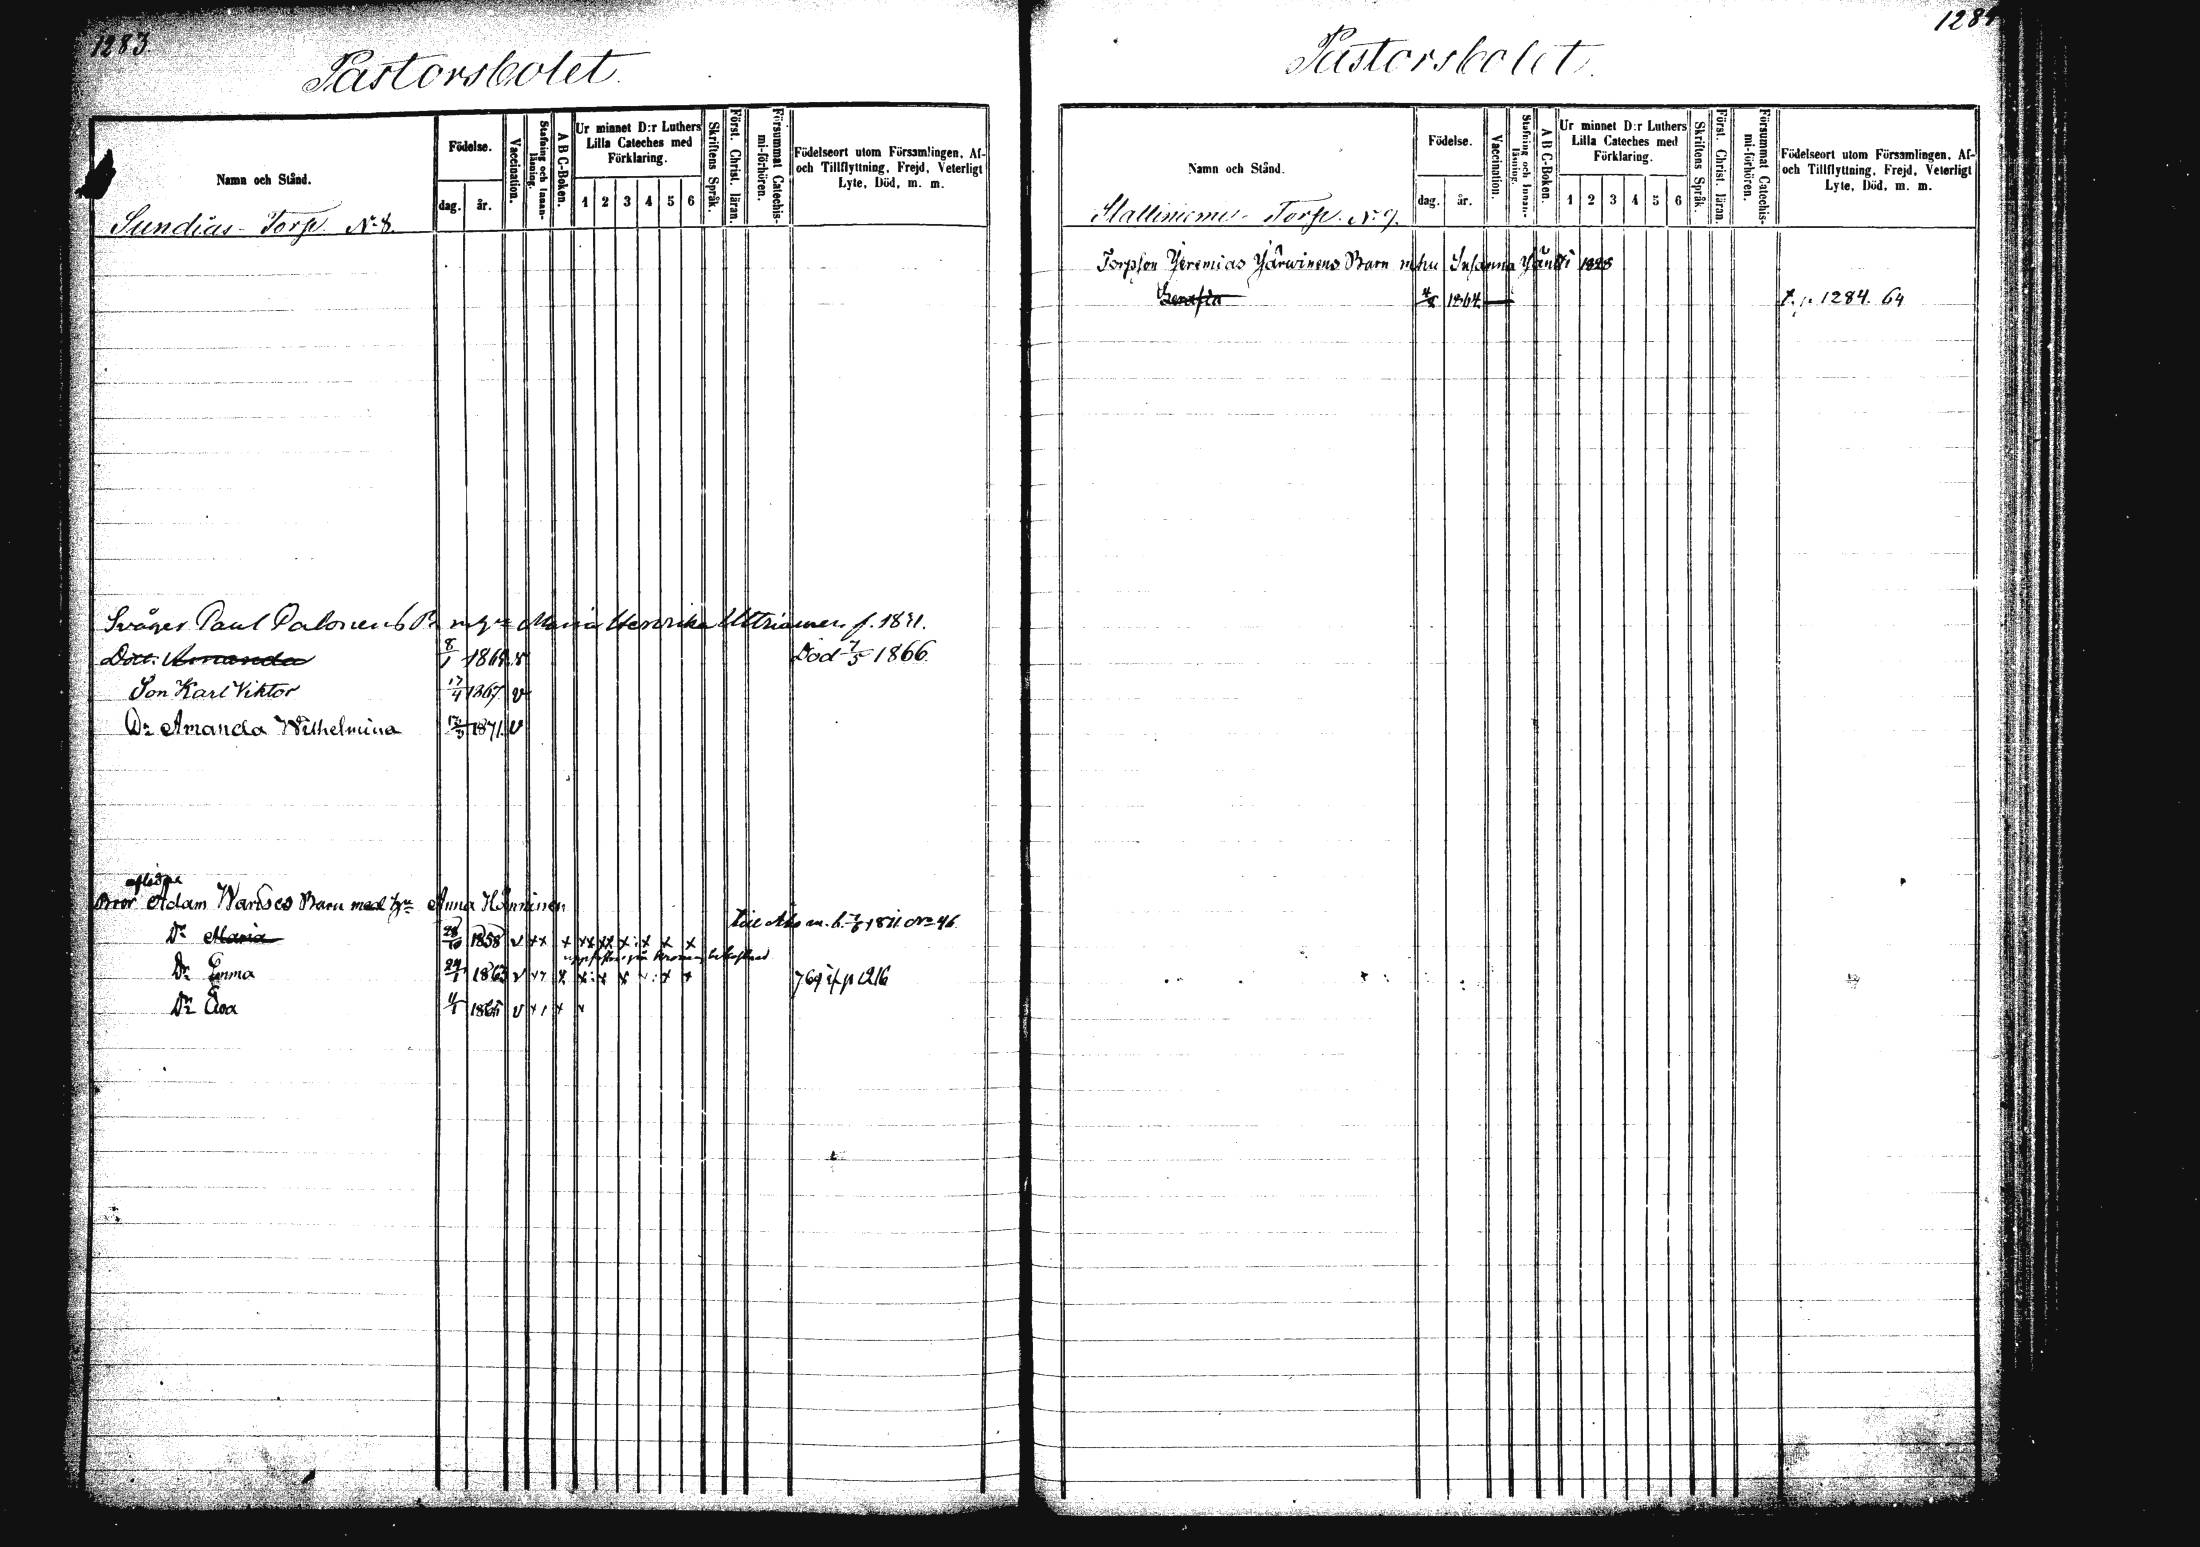 1283
Pastorsbolet.
Namn och Stånd.
Födelse.
dag.
år.
Vaccination.
Stafning och Innan-
läsning.
A B C-Boken.
Ur minnet D:r Luthers
Lilla Cateches med
Förklaring.
1 2 3 4 5 6
Skriftens Språk.
Först. Christ. läran.
Försummat Catechis-
mi-förhören.
Födelseort utom Församlingen, Af-
och Tillflyttning, Frejd, Veterligt
Lyte, Död, m. m.
Torp. No 8.
Svåger Paul Palonens B. Maria Henrika f. 1841.
Dott. Amanda 8/1 v Död 7/5 1866.
Son Karl Viktor 17/4 1867 v
Dr Amanda Wilhelmina 1871. v
Bror Adam Barn med Anna Hänninen
Dr Maria 28/10 1858 v x x x x x x x x x x
Dr Emma 24/1 1863 v x x x x x x 769 p 1216
Dr Eva 1865 v
1284
Pastorsbolet.
Namn och Stånd.
Födelse.
dag.
år.
Vaccination.
Stafning och Innan-
läsning.
A B C-Boken.
Ur minnet D:r Luthers
Lilla Cateches med
Förklaring.
1 2 3 4 5 6
Skriftens Språk.
Först. Christ. läran.
Försummat Catechis-
mi-förhören.
Födelseort utom Församlingen, Af-
och Tillflyttning, Frejd, Veterligt
Lyte, Död, m. m.
Torp. No 9.
Jeremias Järwinens Barn Susanna 1828
1864 p. 1284. 64